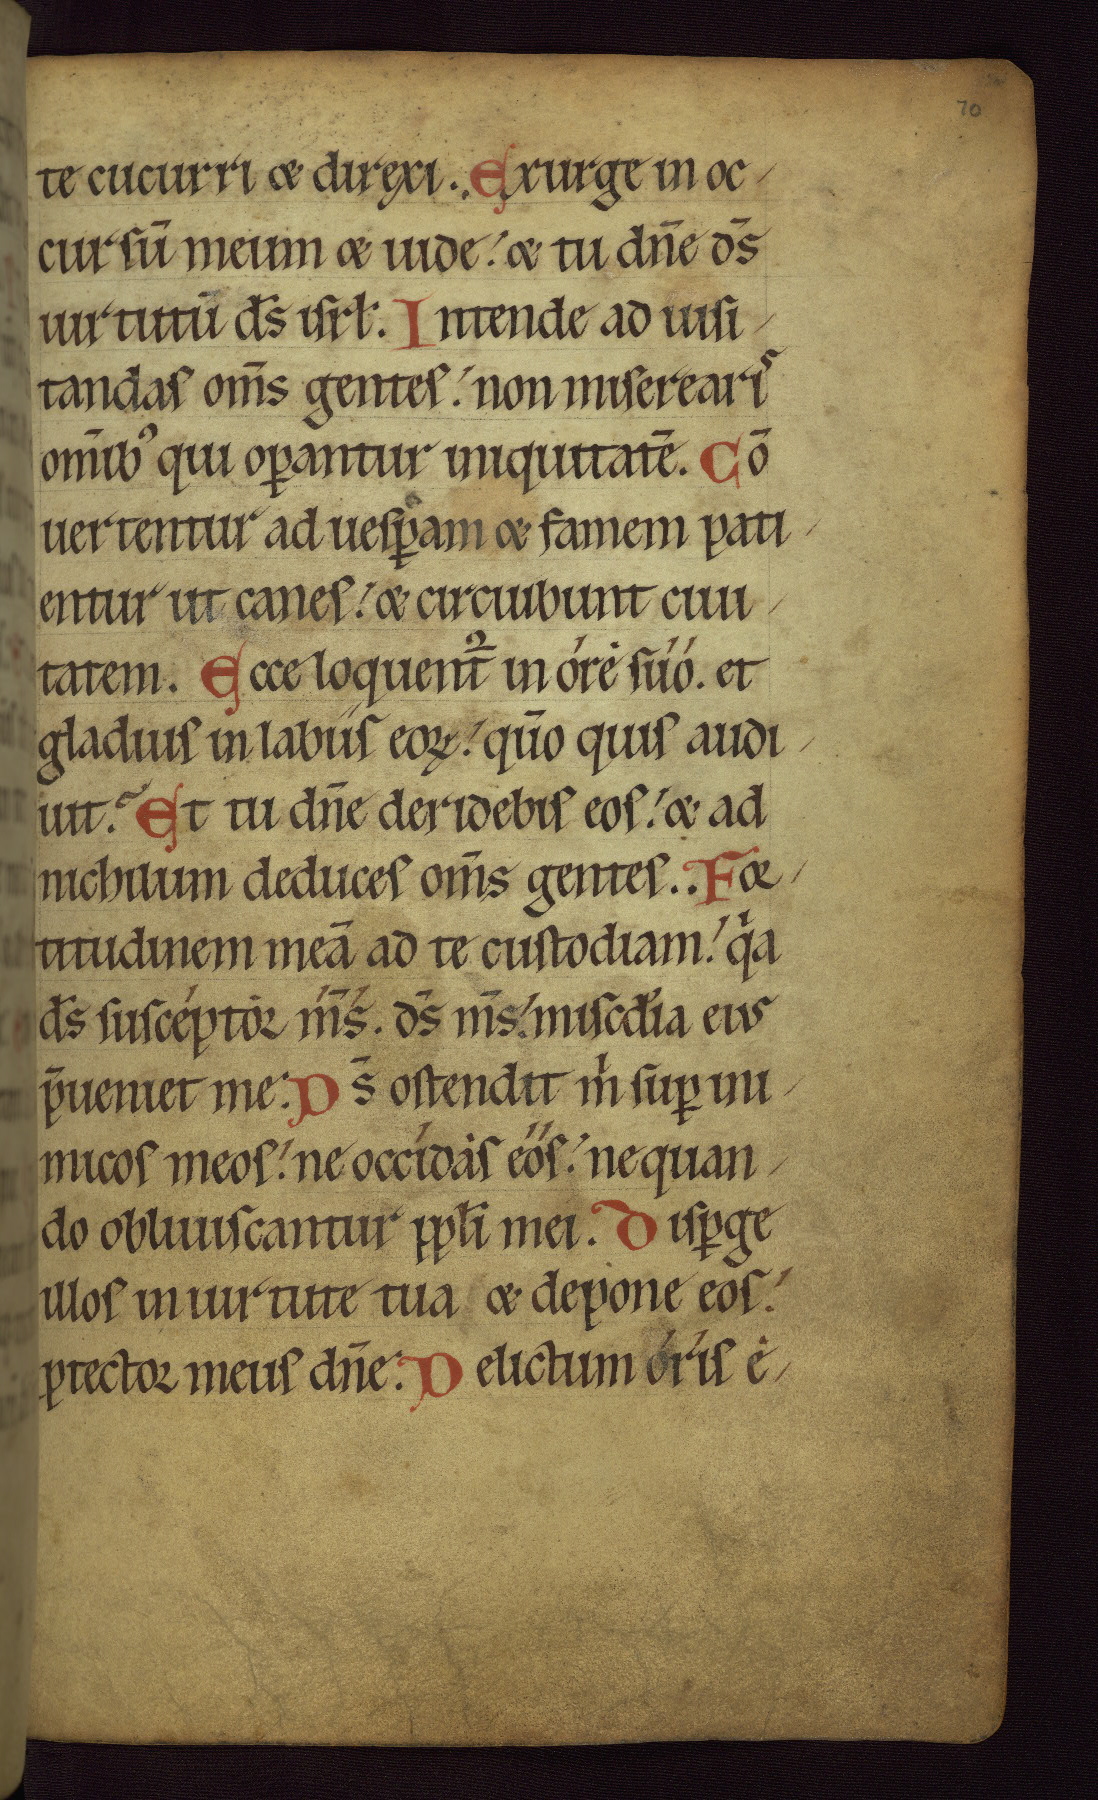 70
te cucurri & direxi. Exurge in oc
cursū meum & uide! & tu dn̄e ds̄
uirtutū ds̄ isrl̄. Intende ad uisi
tandas om̄s gentes! non miserearis
om̄ibꝰ qui oꝑantur iniquitatē. Cō
uertentur ad uesꝑam & famem pati
entur ut canes! & circuibunt ciui
tatem. Ecce loquent᷑ in óre súó. et
gladius in labiis eoꝝ! qūo quis audi
uit. Et tu dn̄e deridebis eos! & ad
nichilum deduces om̄s gentes.. For
titudinem meā ad te custodiam! qͥa
ds̄ suscéptor m̄s. ds̄ m̄s! misc̄dia eius
p̄ueniet me. Ds̄ ostendit mͥ suꝑ ini
micos meos! ne occídas eós! nequan
do obliuiscantur ppl̄i mei. Disꝑge
illos in uirtute tua & depone eos!
ꝓtector meus dn̄e. Delictum óris é